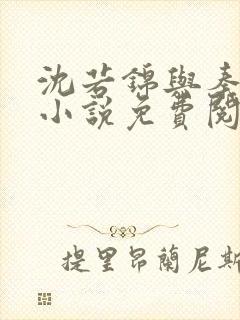 沈若錦與秦
小說免費閱
提里昂蘭尼斯